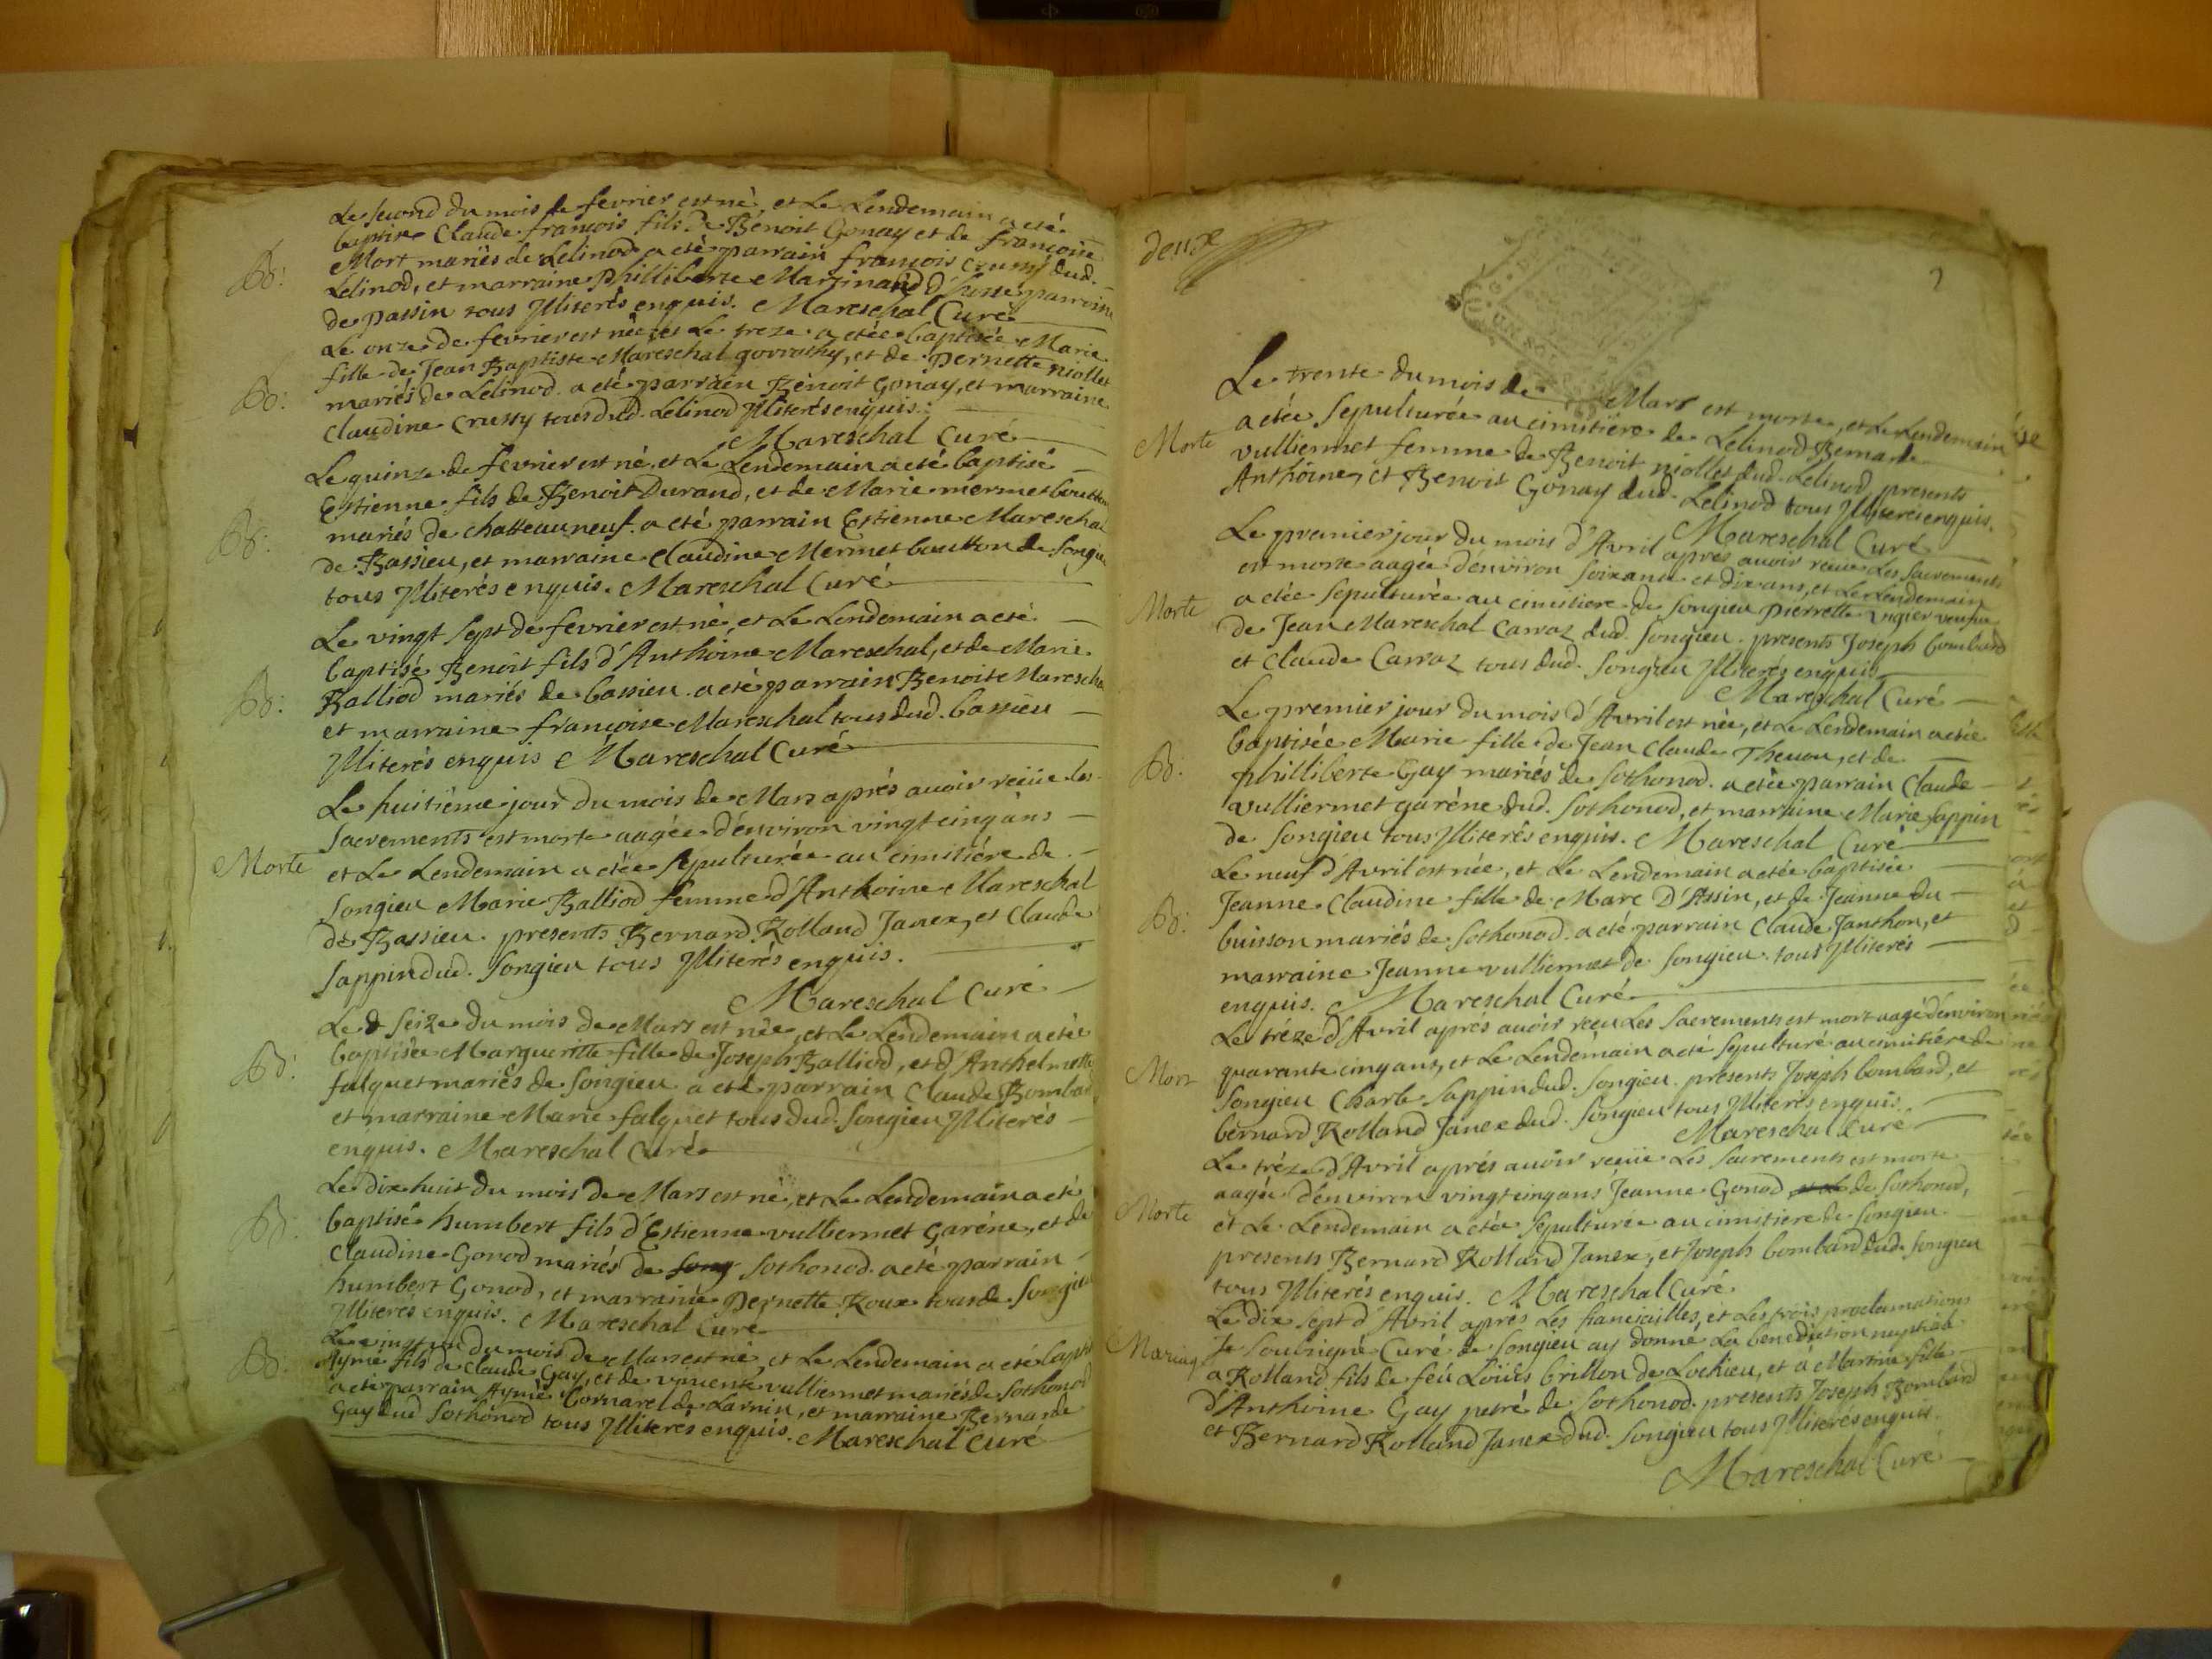 Le second du mois de fevrier est né, et Le Lendemain a eté
baptisé Claude françois fils de Benoit Gonay et de françoise
Mort mariés de Lelinod a eté parrain françois Crussy dud.
B:
Lelinod, et marraine Philliberte Martinand d'husse parroisse
de passin tous Illiterés enquis. Mareschal Curé
Le onze de fevrier est née et Le treze a etée baptisée Marie
fille de Jean Baptiste Mareschal gorrathy, et de Pernette niollet
B:
mariés de Lelinod. a eté parrain Benoit Gonay, et marraine
Claudine Crussy tous dud. Lelinod Illiterés enquis.
Mareschal Curé
Le quinze de fevrier est né, et Le Lendemain a eté baptisé
Estienne fils de Benoit Durand, et de Marie mermet boutton
B:
mariés de chatteauneuf. a eté parrain Estienne Mareschal
de Bassieu, et marraine Claudine Mermet boutton de Songieu
tous Illiterés enquis. Mareschal Curé
Le vingt sept de fevrier est né, et Le Lendemain a eté
baptisé Benoit fils d'Anthoine Mareschal, et de Marie
B:
Balliod mariés de bassieu. a eté parrain Benoit Mareschal
et marraine françoise Mareschal tous dud. bassieu
Illiterés enquis Mareschal Curé
Le huitième jour du mois de Mars aprés auoir reçüe les
Sacrements est morte aagée d'énviron vingt cinq ans
Morte
et Le Lendemain a etée sepulturée au cimitiére de
Songieu Marie Balliod femme d'Anthoine Mareschal
de Bassieu. presents Bernard Rolland Janex, et Claude
Sappin dud. Songieu tous Illiterés enquis.
Mareschal Curé
Le seize du mois de Mars est née, et Le Lendemain a etée
B:
baptisée Margueritte fille de Joseph Balliod, et d'Anthelmette
falquet mariés de Songieu a eté parrain Claude Bombard
et marraine Marie falquet tous dud. Songieu Illiterés
enquis. Mareschal Curé
Le dix huit du mois de Mars est né, et Le Lendemain a eté
B:
baptisé humbert fils d'Estienne vulliermet Garéne, et de
Claudine Gonod mariés de song Sothonod. a eté parrain
humbert Gonod, et marraine Pernette Roux tous de Songieu
Illiteres enquis. Mareschal Curé
Le vingt un du mois de Mars est né, et Le Lendemain a eté baptisé
B:
Aymé fils de Claude Gay, et de vincente vulliermet mariés de Sothonod
a eté parrain Aymé Cornarel de Larnin, et marraine Bernarde
Gay dud Sothonod tous Illiterés enquis. Mareschal Curé
deux
2
Le trente du mois de Mars est morte, et Le Lendemain
a etée sepulturée au cimitiére de Lelinod Bernarde
Morte
vulliermet femme de Benoit niollet dud. Lelinod presents
Anthoine, et Benoit Gonay dud. Lelinod tous Illiterés enquis.
Mareschal Curé
Le premier jour du mois d'Avril apres auoir reçue Les Sacrements
est morte aagée d'énviron soixante et dix ans, et Le Lendemain
Morte
a etée sepulturée au cimitiere de Songieu pierrette vugier veufue
de Jean Mareschal Carraz dud. Songieu. presents Joseph bombard
et Claude Carraz tous dud. Songieu Illiterés enquis
Mareschal Curé
Le premier jour du mois d'Avril est née, et Le Lendemain a etée
baptisée Marie fille de Jean Claude Theuon, et de
B:
philliberte Gay mariés de Sothonod. a etée parrain Claude
vulliermet garéne dud. Sothonod, et marraine Marie Sappin
de Songieu tous Illiterés enquis. Mareschal Curé
Le neuf d'Avril est née, et Le Lendemain a etée baptisée
Jeanne Claudine fille de Marc D'Assin, et de Jeanne du
B:
buisson mariés de Sothonod. a eté parrain Claude Janthon, et
marraine Jeanne vulliermet de Songieu. tous Illiterés
enquis. Mareschal Curé
Le treze d'Avril aprés auoir receu Les Sacrements est mort aagé d'énviron
quarante cinq ans, et Le Lendemain a eté sepulturé au cimitiére de
Mort
Songieu Charle Sappin dud. Songieu. presents Joseph bombard, et
bernard Rolland Janex dud. Songieu tous Illiteres enquis.
Mareschal Curé
Le tréze d'Avril aprés auoir reçüe Les Sacrements est morte
aagée d'énviron vingt cinq ans Jeanne Gonod et Le de Sothonod,
Morte
et Le Lendemain a etée sepulturée au cimitiere de Songieu.
presents Bernard Rolland Janex, et Joseph bombard dud. Songieu
tous Illiterés enquis. Mareschal Curé
Le dix sept d'Avril aprés Les fianciailles, et Les trois proclamations
Mariag
Je soubsigné Curé de Songieu ay donné La benediction nuptiale
a Rolland fils de feü Loüis brillon de Lochieu, et á Martine fille
d'Anthoine Gay petré de Sothonod. presents Joseph Bombard
et Bernard Rolland Janex dud. Songieu tous Illiterés enquis.
Mareschal Curé